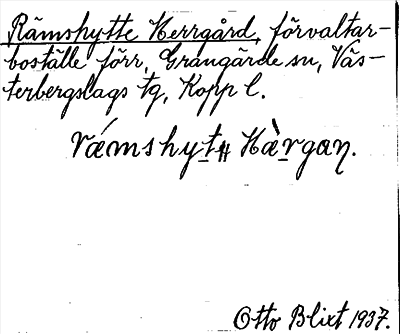 Rämshytte Herrgård, förvaltar-
boställe förr, Grangärde sn, Väs-
terbergslags tg, Kopp l.
rámshyt Hàrgaɳ.
Otto Blixt 1937.